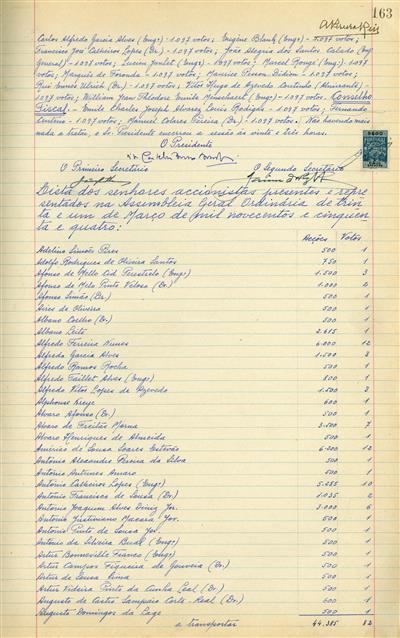 163
Carlos Alfredo Garcia Alves (Engº) - 1.097 votos; Eugène Blank (Engº) - 1.097 votos;
Francisco José Calheiros Lopes (Dr.) - 1.097 votos; João Alegria dos Santos Calado (Eng.
General) - 1.097 votos; Lucien Jontet (Engº) - 1.097 votos; Marcel Rougé (Engº) - 1.097
votos; Marquês de Foronda - 1.097 votos; Maurice Pesson-Didion - 1.097 votos;
Ruy Ennes Ulrich (Dr.) - 1.097 votos; Vitor Hugo de Azevedo Coutinho (Almirante) -
1.097 votos; William Jean Théodore Emile (Engº) - 1.097 votos. Conselho
Fiscal: - Emile Charles Joseph Alvarez Louis Rodigas - 1.097 votos; Fernando
- 1.097 votos; Manuel Colares Pereira (Dr.) - 1.097 votos. Não havendo mais
nada a tratar, o Sr. Presidente encerrou a sessão às vinte e três horas.
O Presidente
O Primeiro Secretário O Segundo Secretário
Lista dos senhores accionistas presentes e repre
sentados na Assembleia Geral Ordinária de trin
ta e um de Março de mil novecentos e cinquen
ta e quatro:
Acções Votos
Adelino Simões Pires 500 1
Adolfo Rodrigues de Oliveira Santos 750 1
Afonso de Mello Cid Perestrelo (Engº) 1.500 3
Afonso de Melo Pinto Veloso (Dr.) 1.000 2
Afonso Simão (Dr.) 500 1
Aires de Oliveira 500 1
Albano Coelho (Dr.) 500 1
Albano Leite 2.615 1
Alfredo Ferreira Nunes 6.000 12
Alfredo Garcia Alves 1.500 3
Alfredo Ramos Rocha 500 1
Alfredo Taillet Alves (Engº) 500 1
Alfredo Vitor Lopes de Azevedo 1.500 3
Alphonse Kreye 600 1
Alvaro Afonso (Dr.) 500 1
Alvaro de Freitas Morna 3.500 7
Alvaro Henriques de Almeida 500 1
Américo de Sousa Soares Estevão 6.200 12
António Alexandre Pereira da Silva 500 1
António Antunes Amaro 500 1
António Calheiros Lopes (Engº) 5.255 10
António Francisco de Sousa (Dr.) 1.035 2
António Joaquim Alves Diniz Jor. 3.000 6
António Justiniano Macara Jor. 500 1
António Pinto de Sousa Jor. 500 1
António da Silveira Bual (Engº) 500 1
Artur Bonneville Franco (Engº) 500 1
Artur Campos Figueira de Gouveia (Dr.) 500 1
Artur de Sousa Lima 500 1
Artur Videira Pinto da Cunha Leal (Dr.) 500 1
Augusto de Castro Sampaio Corte-Real (Dr.) 500 1
Augusto Domingos da Lage 500 1
a transportar 44.385 82